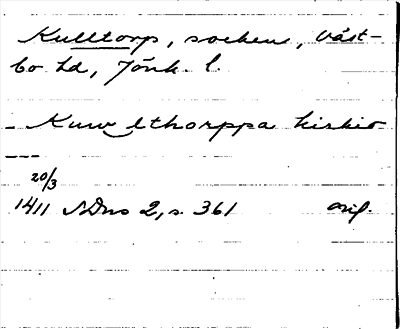 Kulltorp, socken, Väst-
bo hd, Jönk. l.
- Kuwlthorppa kirkio
---
20/3
1411 SDns 2, s. 361 orig.